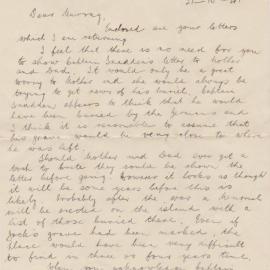 21-10-41
Dear Murray,
Enclosed are your letters
which I am returning
I feel that there is no need for you
to show Captain Saunders letter to Mother
and Dad. It would only be a great
worry to Mother and she would always be
trying to get news of his burial. Captain
Saunders appears to think that he would
have been buried by the Germans and
I think it is reasonable to assume that
his grave would be very close to where
he was left.
Should Mother and Dad ever get a
trip to Crete they could be shown the
letter before going! However it looks as though
it will be some years before this is
likely. Probably after the war a memorial
will be erected on the island with a
list of those buried there. Even if
Jock's grave had been marked, the
place would have been very difficult
to find in three or four years time.